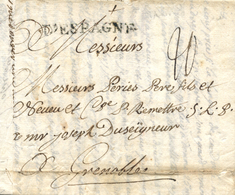 D'ESPAGNE
A Messieurs
20
Messieurs Peries Pere fils et
Neveu et Cie P. Remettre S. L. P.
a mr joseph Duseigneur
A Grenoble